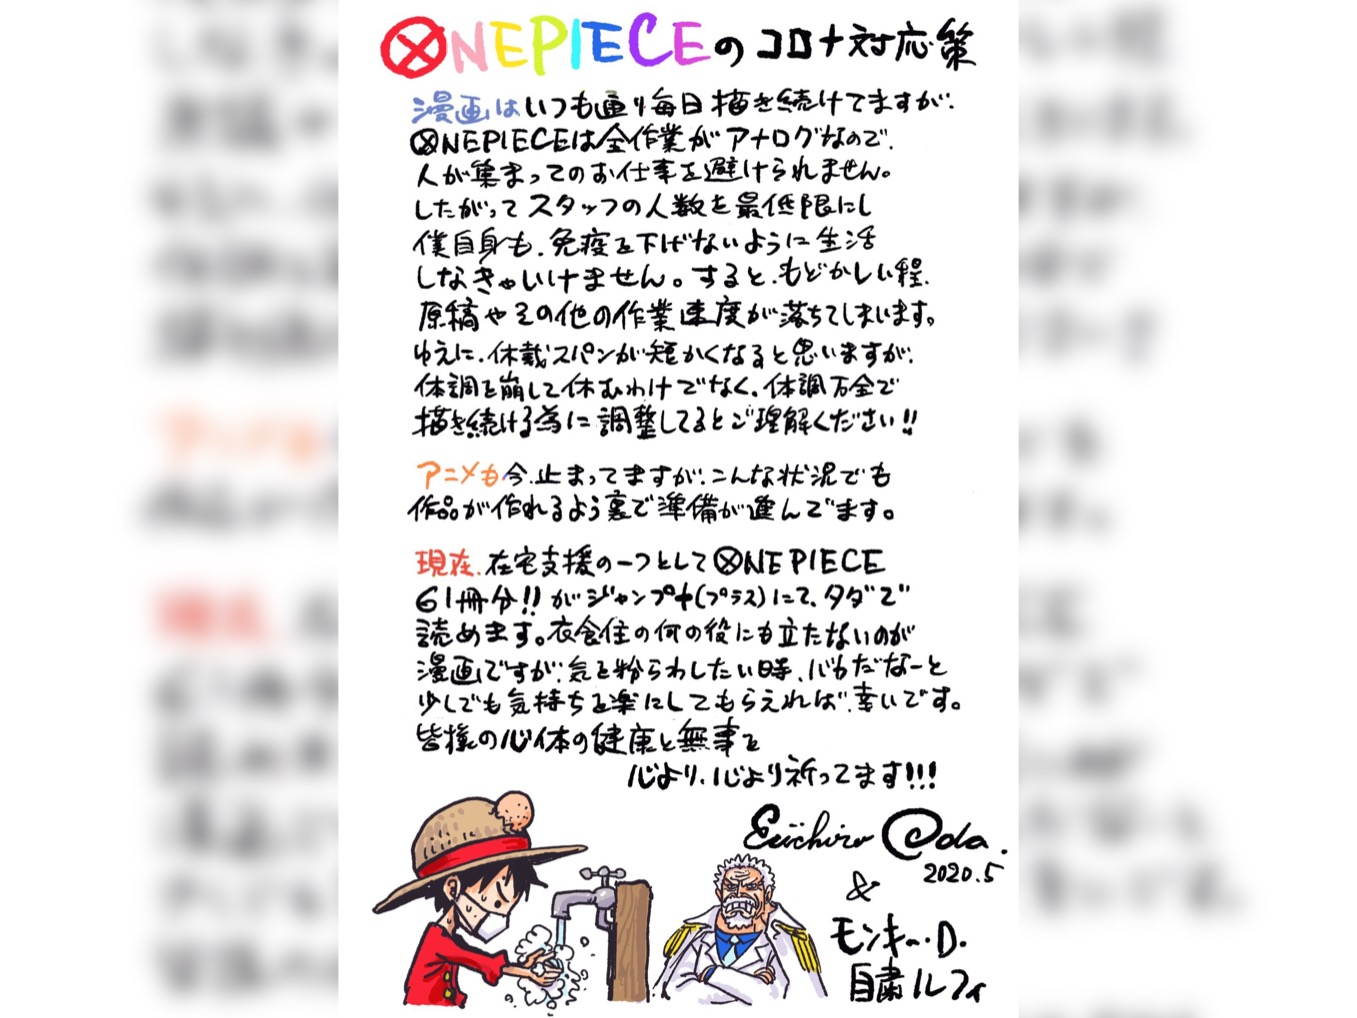 ONEPIECEのコロナ対応策
漫画はいつも通り毎日描き続けてますが、
ONEPIECEは全作業がアナログなので、
人が集まってのお仕事を避けられません。
したがってスタッフの人数を最低限にし
僕自身も、免疫を下げないように生活
しなきゃいけません。すると、もどかしい程、
原稿やその他の作業速度が落ちてしまいます。
ゆえに、休載スパンが短かくなると思いますが、
体調を崩して休むわけでなく、体調万全で
描き続ける為に調整してるとご理解ください!!
アニメも今、止まってますが、こんな状況でも
作品が作れるよう裏で準備が進んでます。
現在、在宅支援の一つとしてONE PIECE
61冊分!!がジャンプ+(プラス)にて、タダで
読めます。衣食住の何の役にも立たないのが
漫画ですが、気を紛らわしたい時、バカだなーと
少しでも気持ちを楽にしてもらえれば、幸いです。
皆様の心体の健康と無事を
心より、心より祈ってます!!!
Eiichiro Oda.
2020.5
&
モンキー・D・
自粛ルフィ